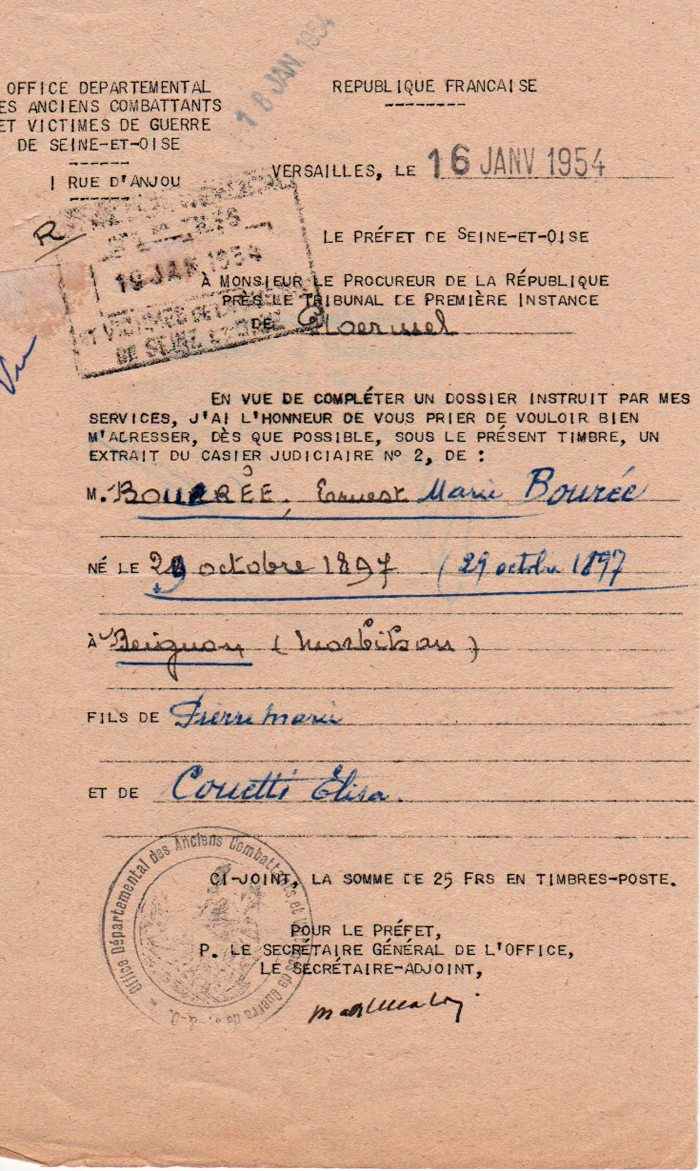 18 JAN. 1954
OFFICE DEPARTEMENTAL
ES ANCIENS COMBATTANTS
ET VICTIMES DE GUERRE
DE SEINE-ET-OISE
1 RUE D'ANJOU
REPUBLIQUE FRANCAISE
VERSAILLES, LE 16 JANV 1954
R
19 JAN 1954
ET VICTIMES DE LA
DE SEINE ET OISE
Vu
LE PRÉFET DE SEINE-ET-OISE
À MONSIEUR LE PROCUREUR DE LA RÉPUBLIQUE
PRÈS LE TRIBUNAL DE PREMIÈRE INSTANCE
DE Ploermel
EN VUE DE COMPLÉTER UN DOSSIER INSTRUIT PAR MES
SERVICES, J'AI L'HONNEUR DE VOUS PRIER DE VOULOIR BIEN
M'ADRESSER, DÈS QUE POSSIBLE, SOUS LE PRÉSENT TIMBRE, UN
EXTRAIT DU CASIER JUDICIAIRE N° 2, DE :
M. BOURRÊE, Ernest Marie Bourée
NÉ LE 29 octobre 1897 (29 octobre 1897
À Beignon (Morbihan)
FILS DE Pierre Marie
ET DE Couetti Élisa.
CI-JOINT, LA SOMME DE 25 FRS EN TIMBRES-POSTE.
POUR LE PRÉFET,
P. LE SECRÉTAIRE GÉNÉRAL DE L'OFFICE,
LE SECRÉTAIRE-ADJOINT,
Office Départemental des Anciens Combattants et Victimes de Guerre de S.-&-O.